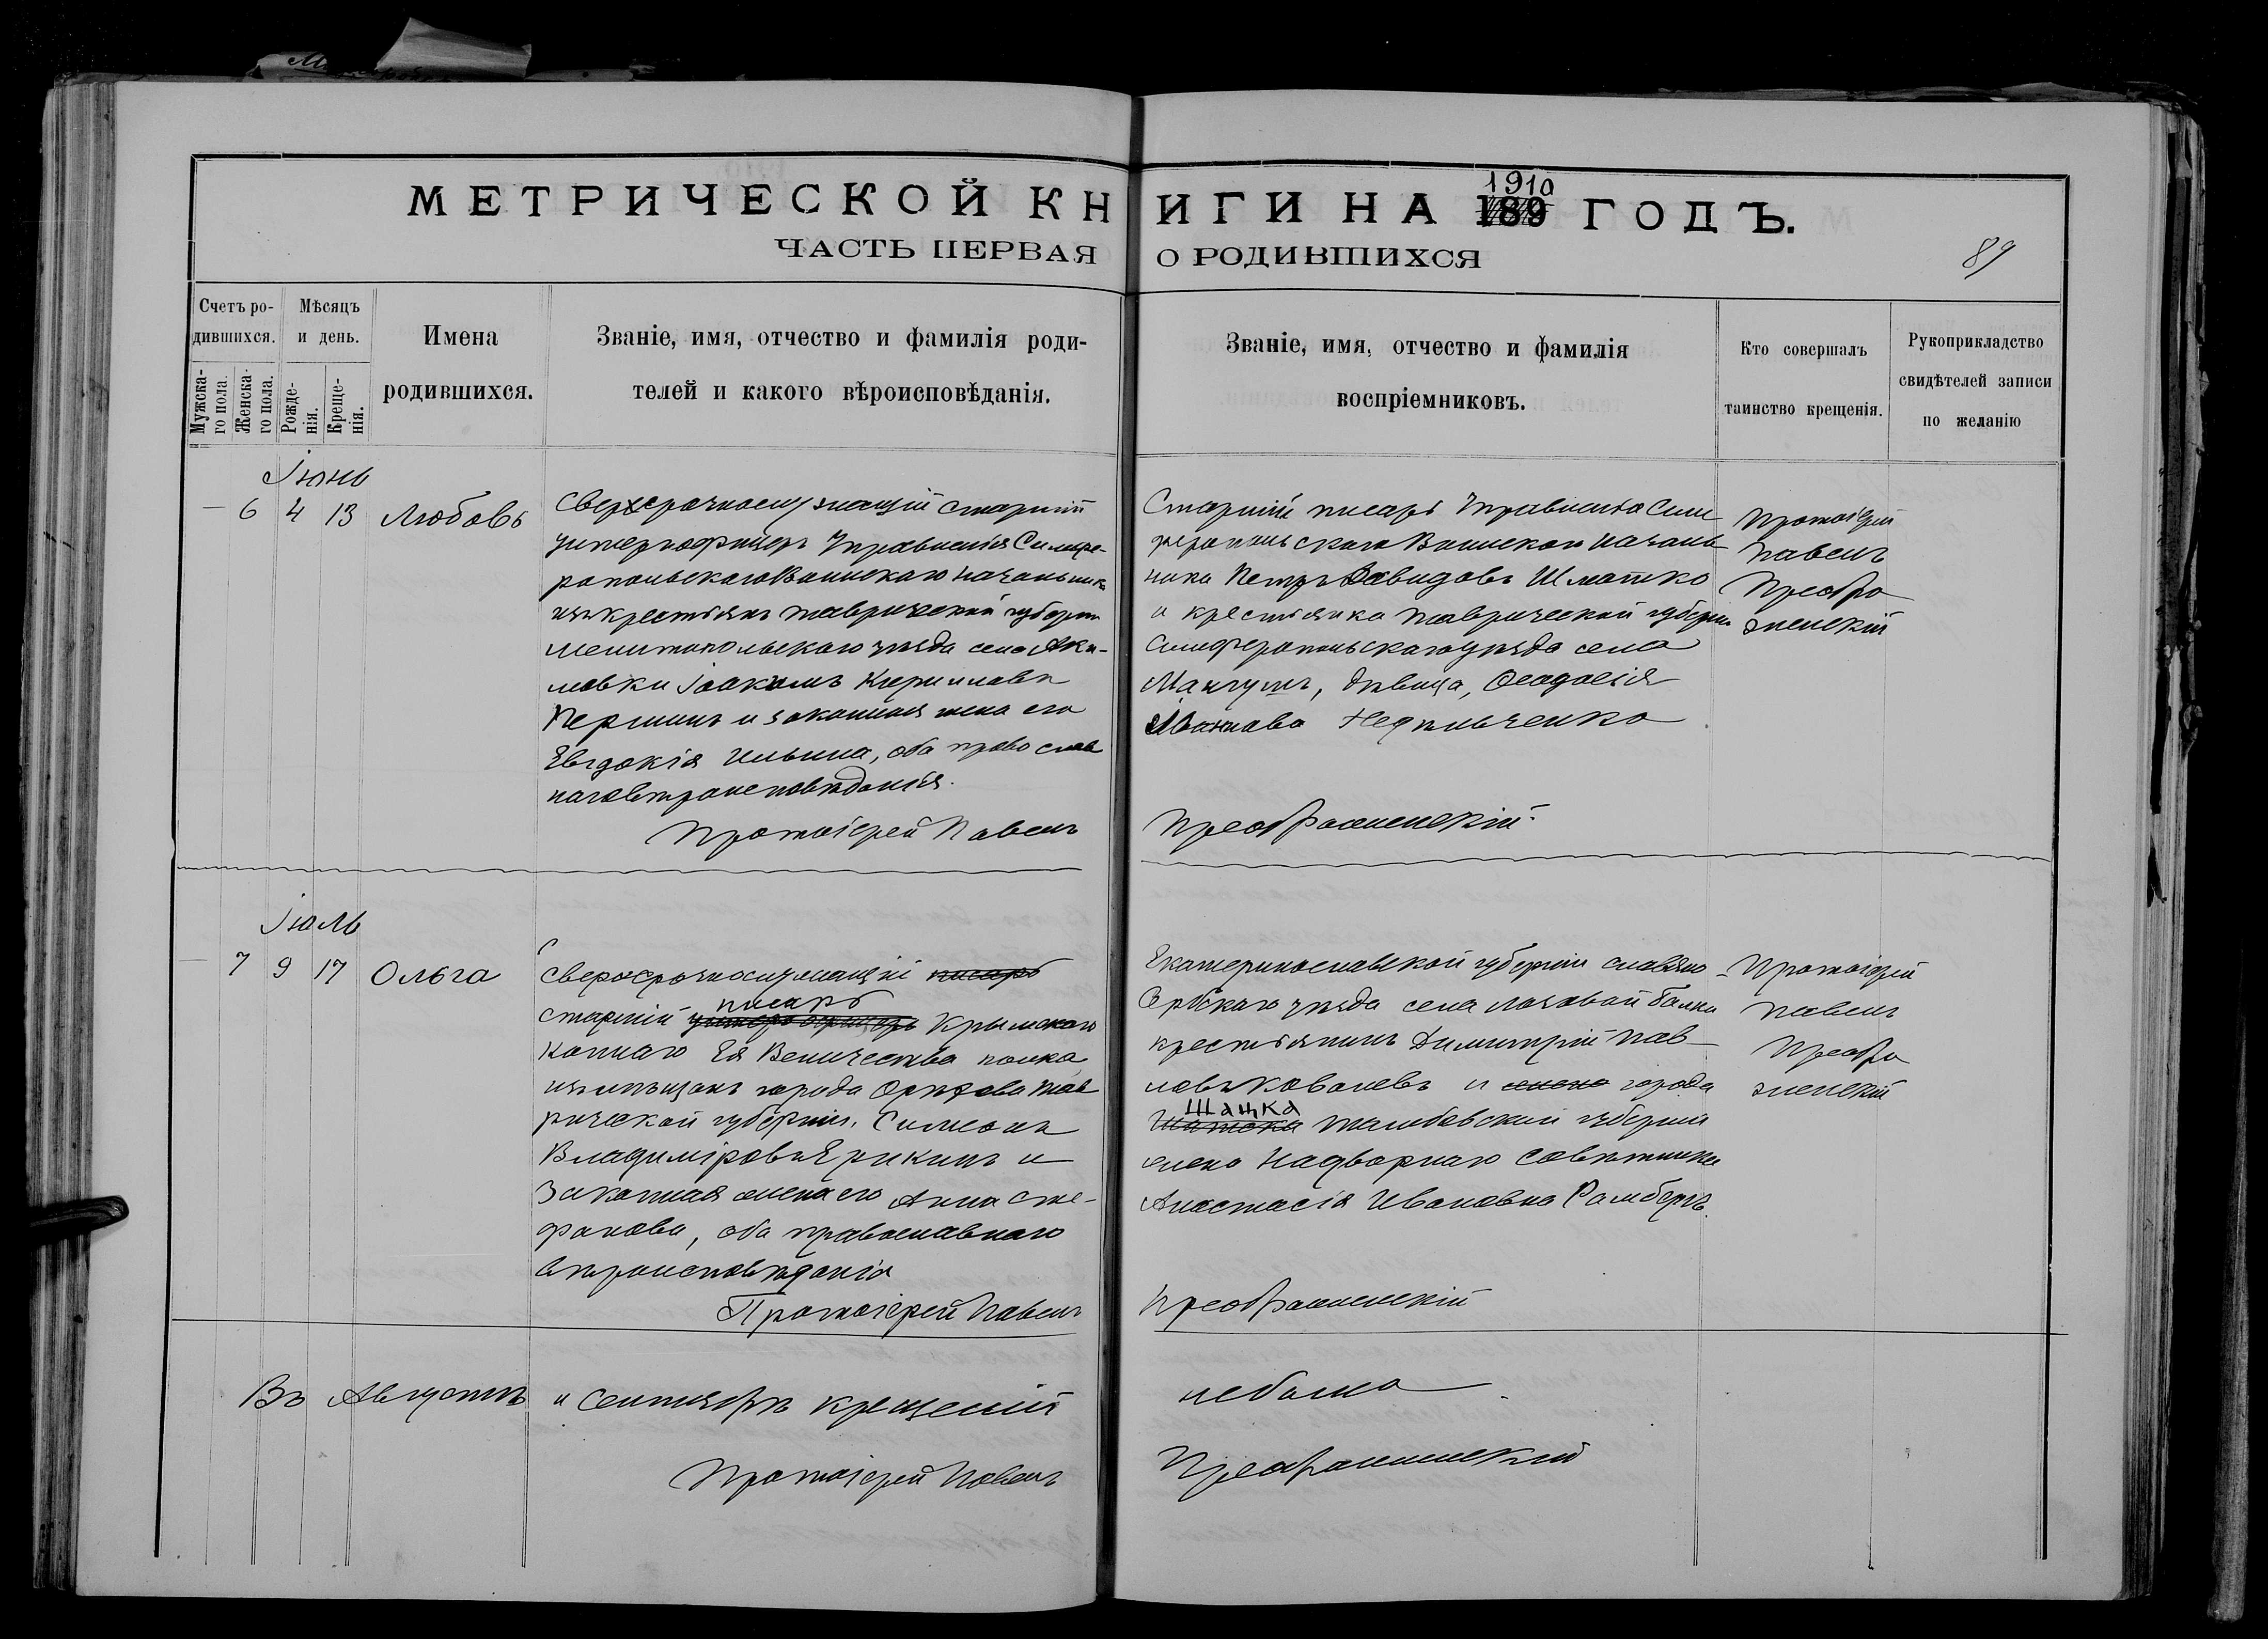 МЕТРИЧЕСКОЙ КНИГИ НА 1910 189 ГОДЪ.
ЧАСТЬ ПЕРВАЯ О РОДИВШИХСЯ
89
Счетъ ро-
дившихся.
Мужска-
го пола.
Женска-
го пола.
Мѣсяцъ
и день.
Рожде-
нія.
Креще-
нія.
Имена
родившихся.
Званіе, имя, отчество и фамилія роди-
телей и какого вѣроисповѣданія.
Званіе, имя, отчество и фамилія
воспріемниковъ.
Кто совершалъ
таинство крещенія.
Рукоприкладство
свидѣтелей записи
по желанію
Іюнь
— 6 4 13 Любовь
Сверхсрочнослужащій старшій
унтерофицеръ Управленія Симфе-
ропольскаго Воинскаго Начальника
изъ крестьянъ Таврической губерніи
Мелитопольскаго уѣзда села Аки-
мовки Іоакимъ Кирилловъ
Першинъ и законная жена его
Евдокія Ильина, оба православ
наго вѣроисповѣданія.
Протоіерей Павелъ
Старшій писарь Управленія Сим
феропольскаго Воинскаго Началь
ника Петръ Давидовъ Шматко
и крестьянка Таврической губерніи
Симферопольскаго уѣзда села
Мангушъ, дѣвица, Ѳеодосія
Иванова Недѣльченко
Преображенскій
Протоіерей
Павелъ
Преобра
женскій
Іюль
— 7 9 17 Ольга
Сверхсрочнослужащій писарь
писарь
старшій унтеръ офицеръ Крымскаго
Коннаго Ея Величества полка,
изъ мѣщанъ города Орѣхова Тав
рической губерніи, Симеонъ
Владиміровъ Ерикинъ и
Законная жена его Анна Сте-
фанова, оба православнаго
вѣроисповѣданія
Протоіерей Павелъ
Екатеринославской губерніи славяно-
Сербскаго уѣзда села Лозовой балки
крестьянинъ Димитрій Пав
ловъ Ковалевъ и жена города
Шацка
Шатска Тамбовской губерніи
жена Надворнаго Совѣтника
Анастасія Ивановна Рамбергъ.
Преображенскій
Протоіерей
Павелъ
Преобра
женскій
Въ Августѣ и Сентябрѣ крещеній
не было
Протоіерей Павелъ
Преображенскій